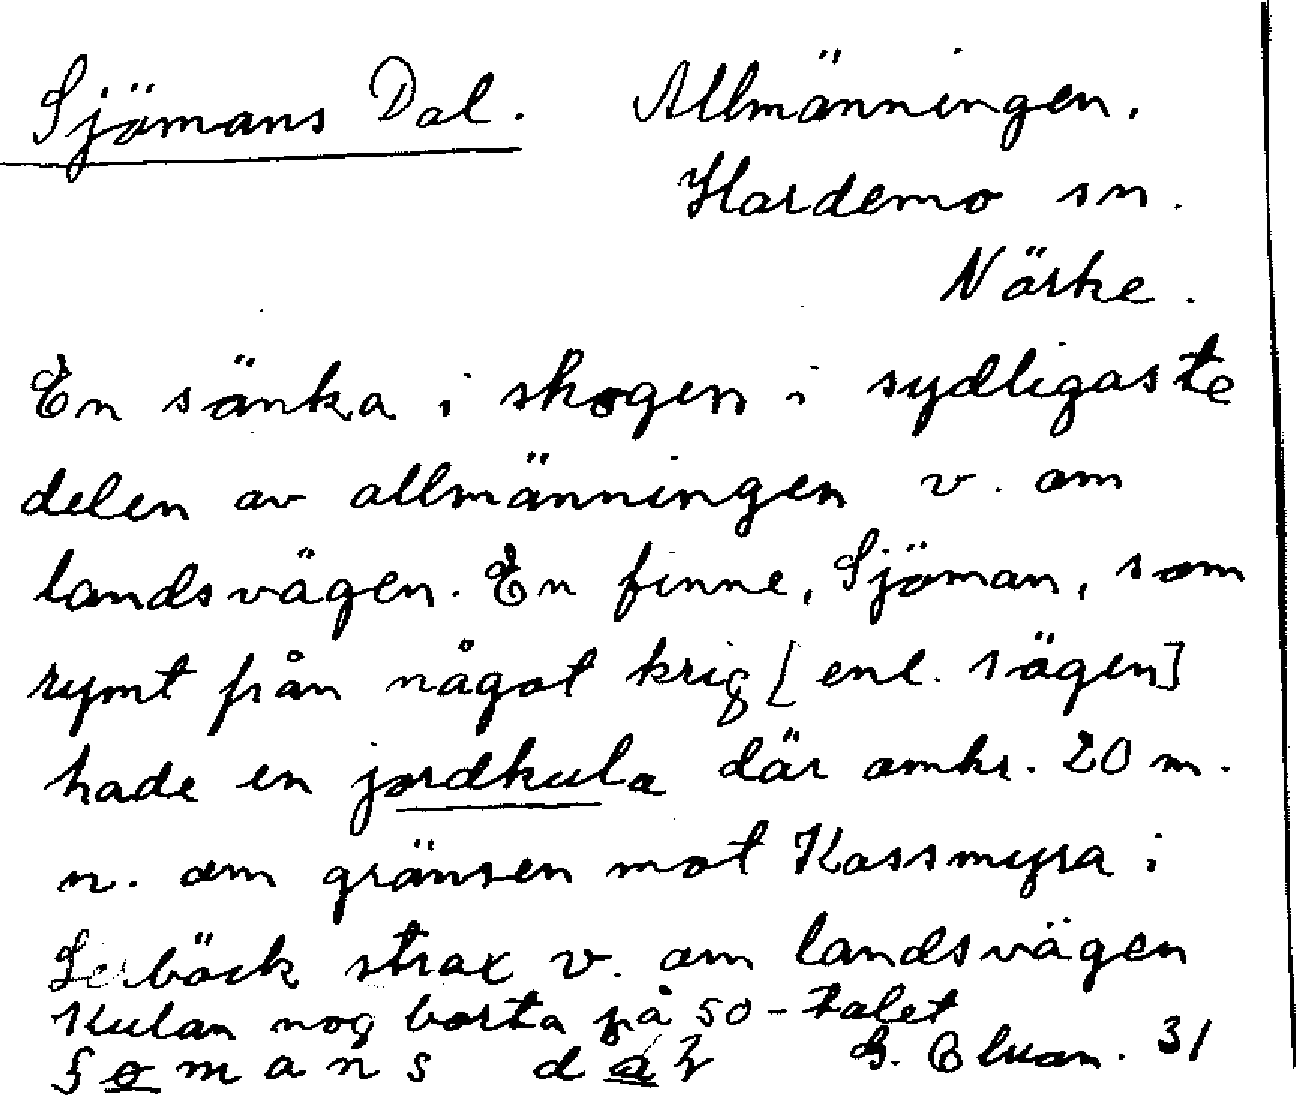 Sjömans Dal. Allmänningen.
Hardemo sn.
Närke.
En sänka i skogen i sydligaste
delen av allmänningen v. om
landsvägen. En finne, Sjöman, som
rymt från något krig [enl. sägen]
hade en jordkula där omkr. 20 m.
n. om gränsen mot Kassmyra i
Lerbäck strax v. om landsvägen
Kulan nog borta på 50-talet
G. Elvan. 31